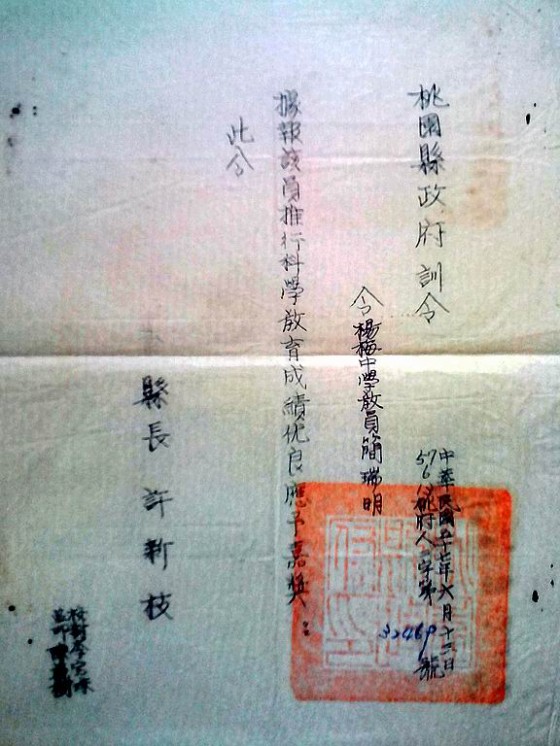 桃園縣政府訓令
中華民國五十七年六月十二日
桃府人 字第32469號
令楊梅中學教員簡瑞明
據報該員推行科學教育成績优良應予嘉獎
此令
縣長 許新枝